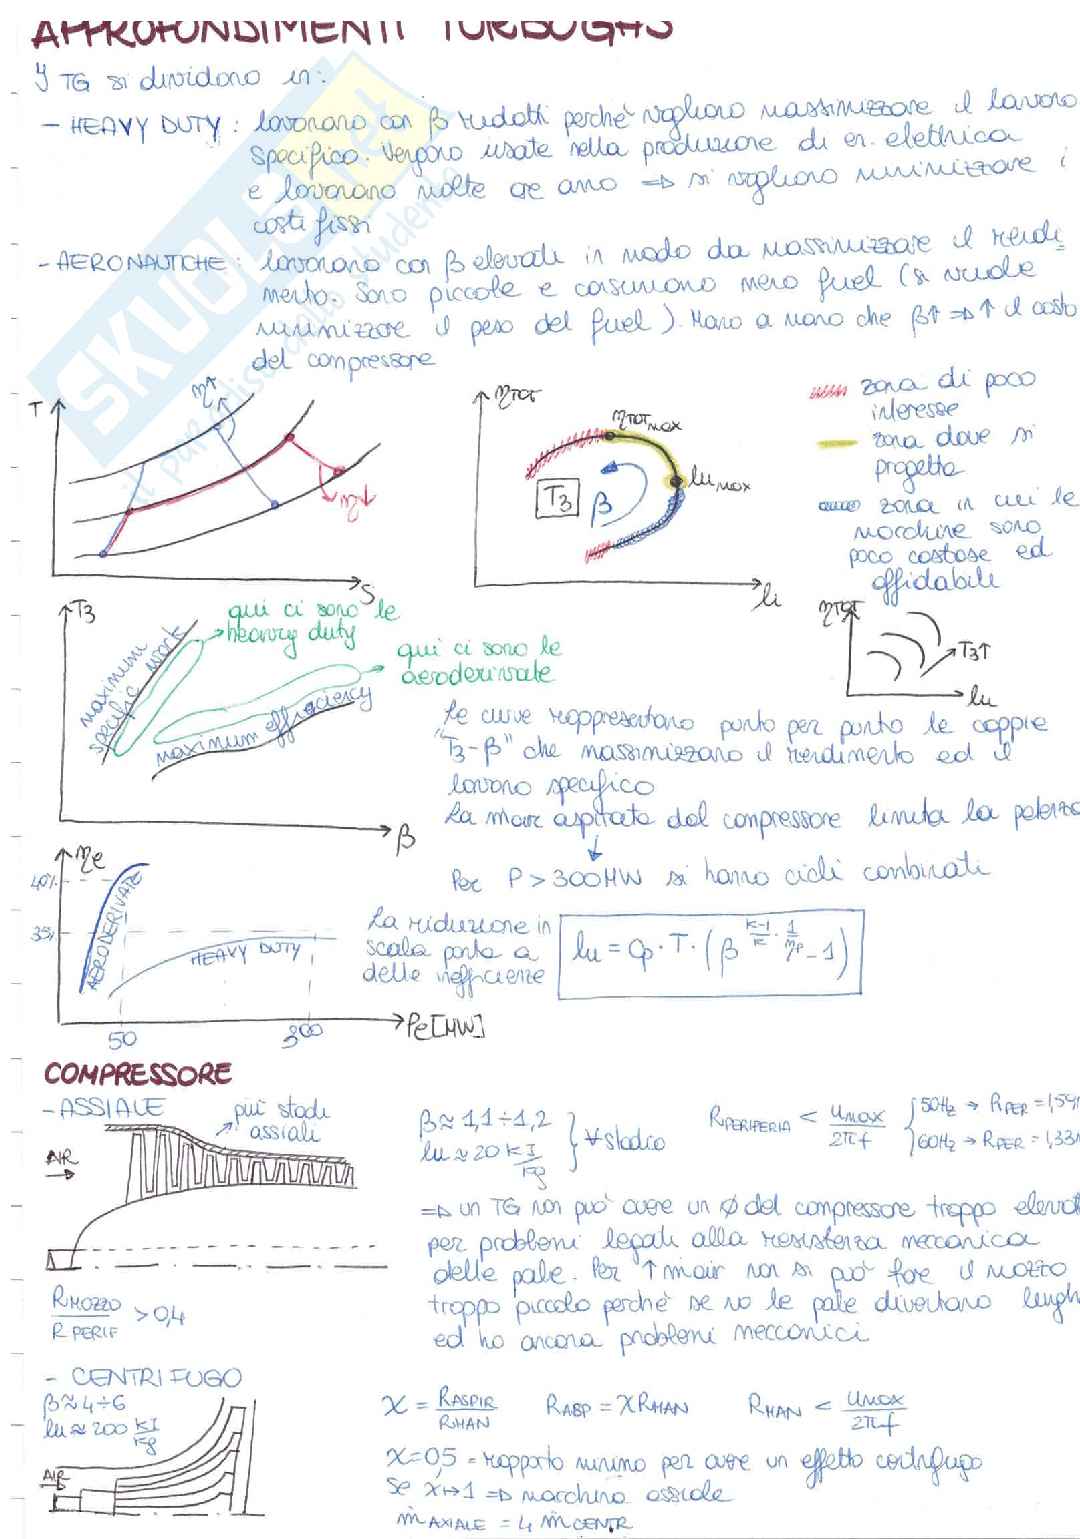 APPROFONDIMENTI TURBOGAS
I TG si dividono in:
- HEAVY DUTY: lavorano con β ridotti perchè vogliono massimizzare il lavoro
specifico. Vengono usate nella produzione di en. elettrica
e lavorano molte ore anno => si vogliono minimizzare i
costi fissi
- AERONAUTICHE: lavorano con β elevati in modo da massimizzare il rendi
mento. Sono piccole e consumano meno fuel (si vuole
minimizzare il peso del fuel). Mano a mano che β↑ => ↑ il costo
del compressore
SKUOLA.net
il paradiso dello studente
T
η↑
η↓
S
ηTOT
ηTOT MAX
lu MAX
T3
β
li
zona di poco
interesse
zona dove si
progetta
zona in cui le
macchine sono
poco costose ed
affidabili
T3
qui ci sono le
heavy duty
maximum
specific work
qui ci sono le
aeroderivate
maximum efficiency
β
ηTOT
T3↑
lu
Le curve rappresentano punto per punto le coppie
"T3-β" che massimizzano il rendimento ed il
lavoro specifico
La mair aspirata dal compressore limita la potenza
↓
Per P > 300MW si hanno cicli combinati
ηe
40%
35%
AERODERIVATE
HEAVY DUTY
50
300
Pe [MW]
La riduzione in
scala porta a
delle inefficienze
lu = Cp · T · (β^(K-1/K · 1/ηp) - 1)
COMPRESSORE
- ASSIALE
più stadi
assiali
AIR
RMOZZO / RPERIF > 0,4
β ≈ 1,1 ÷ 1,2
lu ≈ 20 kJ/kg
∀ stadio
RPERIFERIA < uMAX / 2πf
50Hz → RPER = 1,59
60Hz → RPER = 1,33
=> un TG non può avere un Ø del compressore troppo elevat
per problemi legati alla resistenza meccanica
delle pale. Per ↑ mair non si può fare il mozzo
troppo piccolo perchè se no le pale diventano lungh
ed ho ancora problemi meccanici
- CENTRIFUGO
β ≈ 4 ÷ 6
lu ≈ 200 kJ/kg
AIR
χ = RASPIR / RMAN
RASP = χ RMAN
RMAN < uMAX / 2πf
χ = 0,5 = rapporto minimo per avere un effetto centrifugo
Se χ → 1 => macchina assiale
ṁAXIALE = 4 ṁCENTR